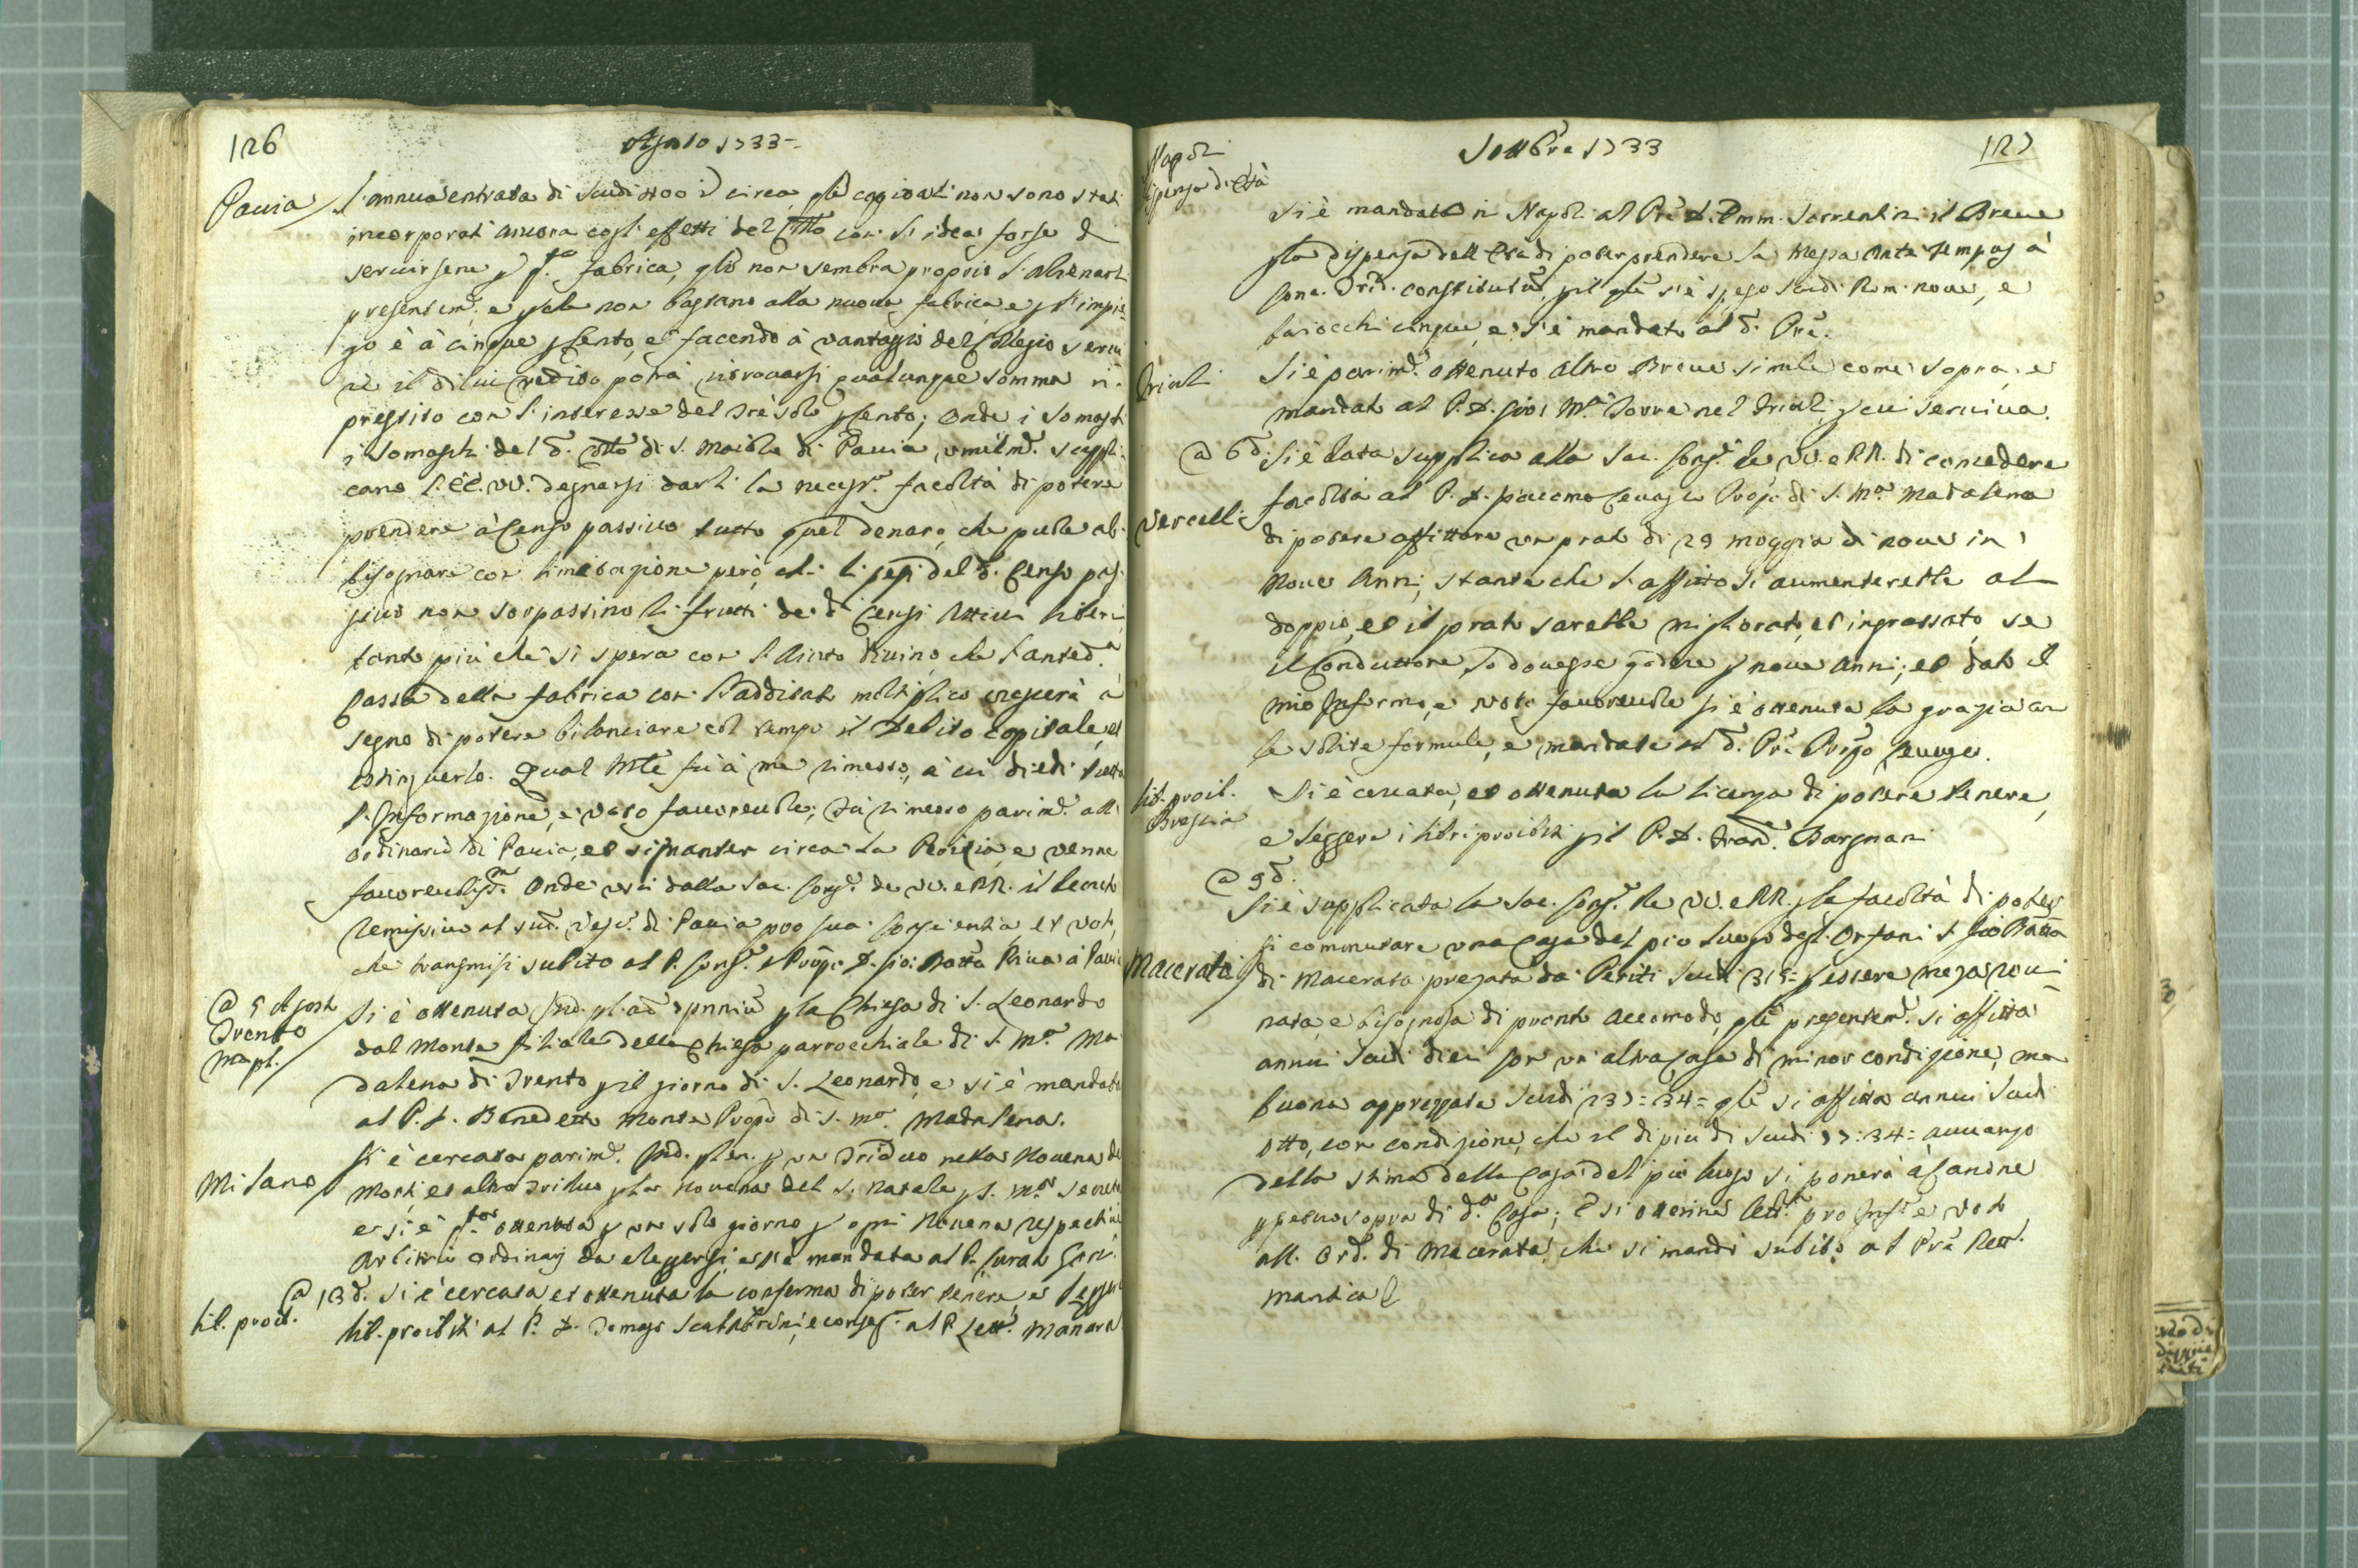 126
Agosto 1733
Pavia
l'annua entrata di Scudi circa, capitali non sono stati
incorporati ancora cogl'effetti del con idea forse di
servirsene fabrica, non sembra proprio l'alienarli
presentem. e non bastano alla nuova fabrica e l'impie
go è à cinque Cento, et facendo à vantaggio del Collegio
il di lui credito potrà ritrovarsi qualunque somma
prestito con l'interesse del trè solo Cento; Onde i Somaschi
i Somaschi del d. di S. Maiolo di Pavia, umilm. suppli
cano l'EE. VV. degnarsi darli la necess. facoltà di potere
prendere à Censo passivo tutto quel denaro, che puole ab
bisognare con limitazione però, che li pesi del d. Censo pas
sivo non sorpassino li frutti de d. Censi Attivi liberi,
tanto più che si spera con l'Aiuto Divino, che l'anted.a
Cassa della fabrica con l'additato moltiplico crescerà à
segno di potere bilanciare col tempo il Debito capitale, et
estinguerlo. Qual fù à me rimesso, à cui diedi
l'Informazione, e voto favorevole; fù rimesso parim. all'
ordinario di Pavia, et signanter circa la e venne
favorevoliss. Onde uscì dalla Sac. Cong. de VV. e RR. il Decreto
Remissivo al Vesc. di Pavia pro sua Conscientia, et voto,
che trasmisi subito al P. Prop. D. Gio: Batta Riva à Pavia
@ 5 Agosto
Trento
Si è ottenuta Ind. la Chiesa di S. Leonardo
dal Monte filiale della Chiesa parrocchiale di S. M.a Ma
dalena di Trento pil giorno di S. Leonardo, e si è mandato
al P. D. Benedetto Monte Propo di S. M.a Madalena.
Milano
Si è cercata parim. Ind. plen. un Triduo nella Novena de
Morti, et altro Triduo Novena del S. Natale S. M.a Secreta
e si è ottenuta un solo giorno ogni Novena respective
Arbitrio Ordinarij da eleggersi, e s'è mandata al P. Curato
@ 13 d.
lib. proib.
Si è cercata et ottenuta la conferma di poter tenere, e leggere
lib. proibiti al P. D. Scalabrini, e al P. Lett. Manara
Settbre 1733
127
Napoli
dispensa d'Età
Si è mandato in Napoli al Pre D. Emm. Sorrentini il Breve
la dispensa dell'Età di poter prendere la Messa Ante tempus à
Conc. Trid. constitutum, si è speso Scudi Rom. nove, e
baiocchi cinque, e si è mandato al d. Pre.
Friuli
Si è parim. ottenuto Altro Breve simile come sopra, e
mandato al P. D. Gio: M.a Torre nel Friuli, cui serviva.
@ 6 d.
Vercelli
Si è data supplica alla Sac. Cong. de VV. e RR. di concedere
facoltà al P. D. Giacomo Prop. di S. M.a Madalena
di potere affittare un prato di 29 moggia di nove in
nove Anni, stante che l'affitto si aumenterebbe al
doppio, et il prato sarebbe migliorato, et ingrassato, se
il Conduttore lo dovesse godere nove Anni; et dato il
mio Informo, e voto favorevole si è ottenuta la grazia con
le solite formule, e mandata al d. Pre Propo
lib. proib.
Brescia
Si è cercata, et ottenuta la licenza di potere tenere,
e leggere i libri proibiti pil P. D. Bargnani
@ 9 d.
Macerata
Si è supplicata la Sac. Cong. de VV. e RR. la facoltà di poter
si commutare una Casa del pio Luogo degl'Orfani S. Gio Batta
di Macerata prezata da Periti Scudi 315= essere meza rovi
nata, e bisognosa di pronto Accomodo, presentem. si affitta
annui Scudi dieci con un'altra Casa di minor condizione, ma
buona apprezzata Scudi 237=34= si affitta annui Scudi
otto, con condizione, che il di più di Scudi 77:34= avvanzo
della stima della Casa del pio luogo si ponerà à Canone
perpetuo sopra di d.a Casa; E si ottenne pro Inf. e voto
all'Ord. di Macerata, che si mandò subito al Pre Rett.
Mantica